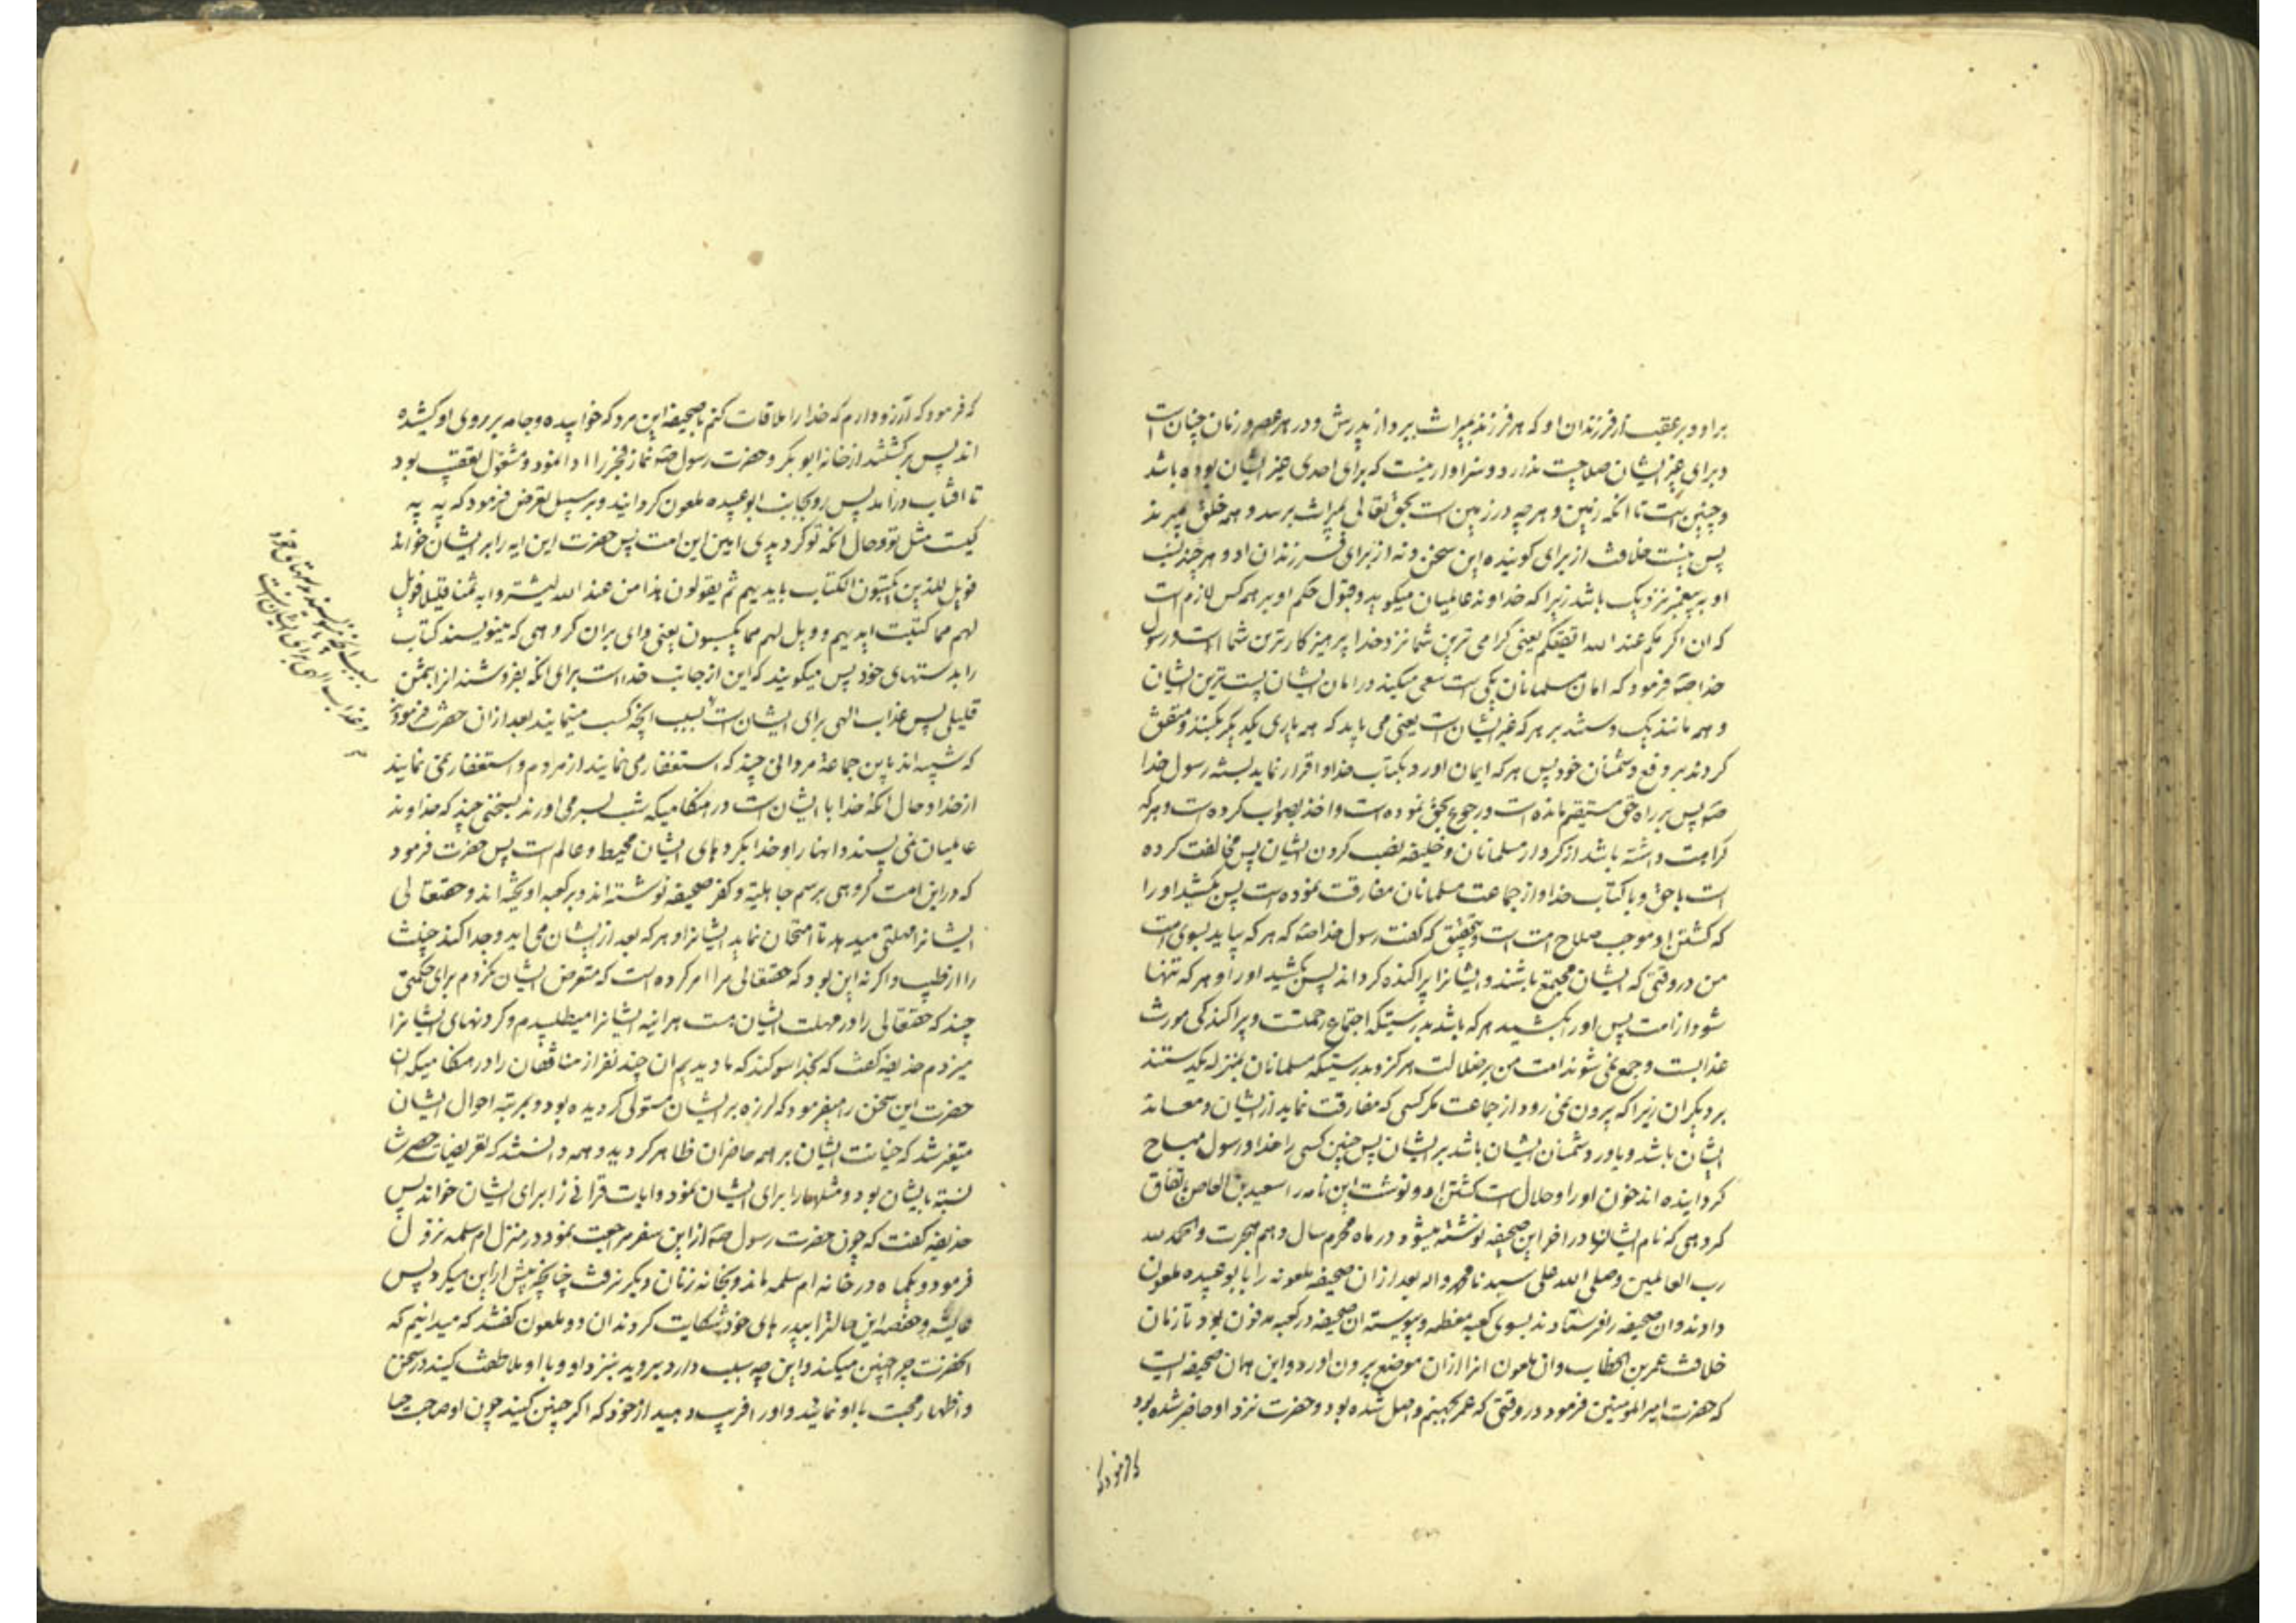 براو و بر عقب از فرزندان او که هر فرزند میراث ببرد از پدرش و در هر عصر و زمان چنان است
و برای غیر ایشان صلاحیت ندارد و سزاوار نیست که برای احدی غیر ایشان بوده باشد
و چنین است تا آنکه زمین و هر چه در زمین است بحق تعالی بمیراث برسد و همه خلق بمیرند
پس نیست خلافت از برای کوینده این سخن و نه از برای فرزندان او و هر چند نسب
او به پیغمبر نزدیک باشد زیرا که خداوند عالمیان میکوید و قبول حکم او بر همه کس لازم است
که ان اکرمکم عند الله اتقیکم یعنی کرامی ترین شما نزد خدا پرهیز کارترین شما است و رسول
خدا صه فرمود که امان مسلمانان یکی است سعی میکند در امان ایشان پست ترین ایشان
و همه مانند یک دستند بر هر که غیر ایشان است یعنی می باید که همه یاری یکدیکر بکنند و متفق
کردند بر دفع دشمنان خود پس هر که ایمان اورد بکتاب خدا و اقرار نماید بسنة رسول خدا
صه پس بر راه حق مستقیم مانده است و رجوع بحق نموده است و اخذ بصواب کرده است و هر که
کراهت داشته باشد از کردار مسلمانان و خلیفه نصب کردن ایشان پس مخالفت کرده
است با حق و با کتاب خدا و از جماعت مسلمانان مفارقت نموده است پس بکشید او را
که کشتن او موجب صلاح امت است و بتحقیق که کفت رسول خدا صه که هر که بیاید بسوی امت
من در وقتی که ایشان مجتمع باشند و ایشانرا پراکنده کرداند پس بکشید او را و هر که تنها
شود از امت پس او را بکشید هر که باشد بدرستیکه اجتماع رحمتست و پراکندکی مورث
عذابست و جمع نمی شوند امت من بر ضلالت هرکز و بدرستیکه مسلمانان بمنزله یکدستند
بر دیکران زیرا که بیرون نمی رود از جماعت مکر کسی که مفارقت نماید از ایشان و معاند
ایشان باشد و یاور دشمنان ایشان باشد بر ایشان پس چنین کسی را خدا و رسول مباح
کردانیده اند خون او را و حلال است کشتن او و نوشت این نامه را سعید بن العاص باتفاق
کروهی که نام ایشان در اخر این صحیفه نوشته میشود در ماه محرم سال دهم هجرت و الحمد لله
رب العالمین و صلی الله علی سیدنا محمد و اله بعد از ان صحیفه ملعونه را بابو عبیده ملعون
دادند و ان صحیفه را فرستادند بسوی کعبه معظمه و پیوسته ان صحیفه در کعبه مدفون بود تا زمان
خلافت عمر بن الخطاب و ان ملعون انرا از ان موضع بیرون اورد و این همان صحیفه ایست
که حضرت امیر المومنین فرمود در وقتی که عمر بجهنم واصل شده بود و حضرت نزد او حاضر شده بود
که فرمود که آرزو دارم که خدا را ملاقات کنم با صحیفه این مرد که خوابیده و جامه بر روی او کشیده
اند پس برکشتند از خانه ابو بکر و حضرت رسول صه نماز فجر را ادا نمود و مشغول تعقیب بود
تا افتاب درآمد پس رو بجانب ابو عبیده ملعون کردانید و بر سبیل تعریض فرمود که به به
کیست مثل تو و حال انکه تو کردیدی امین این امت پس حضرت این ایه را بر ایشان خواند
فویل للذین یکتبون الکتاب بایدیهم ثم یقولون هذا من عند الله لیشتروا به ثمنا قلیلا فویل
لهم مما کتبت ایدیهم و ویل لهم مما یکسبون یعنی وای بران کروهی که مینویسند کتاب
را بدستهای خود پس میکویند که این از جانب خداست برای انکه بفروشند انرا بثمن
قلیلی پس عذاب الهی برای ایشان است بسبب انچه کسب مینمایند بعد از ان حضرت فرمودند
که شبیه اند باین جماعة مردانی چند که استغفار می نمایند از مردم و استغفار نمی نمایند
از خدا و حال انکه خدا با ایشان است در هنکامیکه شب بسر می اورند بسخنی چند که خداوند
عالمیان نمی پسندد انها را و خدا بکردهای ایشان محیط و عالم است پس حضرت فرمود
که در این امت کروهی برسم جاهلیة و کفر صحیفه نوشته اند و بر کعبه اویخته اند و حقتعالی
ایشانرا مهلتی میدهد تا امتحان نماید ایشانرا و هر که بعد از ایشان می اید و جدا کند خبیث
را از طیب و اکر نه این بود که حقتعالی مرا امر کرده است که متعرض ایشان نکردم برای حکمتی
چند که حقتعالی را در مهلت ایشان هست هراینه ایشانرا میطلبیدم و کردنهای ایشانرا
میزدم حذیفه کفت که بخدا سوکند که ما دیدیم ان چند نفر از منافقان را در هنکامیکه ان
حضرت این سخن را میفرمود که لرزه بر ایشان مستولی کردیده بود و بمرتبه احوال ایشان
متغیر شد که خیانت ایشان بر همه حاضران ظاهر کردید و همه دانستند که تعریضات حضرت
نسبة بایشان بود و مثلها را برای ایشان نمود و ایات قرانی را برای ایشان خواند پس
حذیفه کفت که چون حضرت رسول صه از این سفر مراجعت نمود در منزل ام سلمه نزول
فرمود و یکماه در خانه ام سلمه ماند و بخانه زنان دیکر نرفت چنانچه پیش از این میکرد پس
عایشه و حفصه این حالترا بپدرهای خود شکایت کردند ان دو ملعون کفتند که میدانیم که
انحضرت چرا چنین میکند و این چه سبب دارد بروید بنزد او و با او ملاطفت کنید در سخن
و اظهار محبت با او نمائید و او را فریب دهید از خود که اکر چنین کنید چون او صاحب حیا